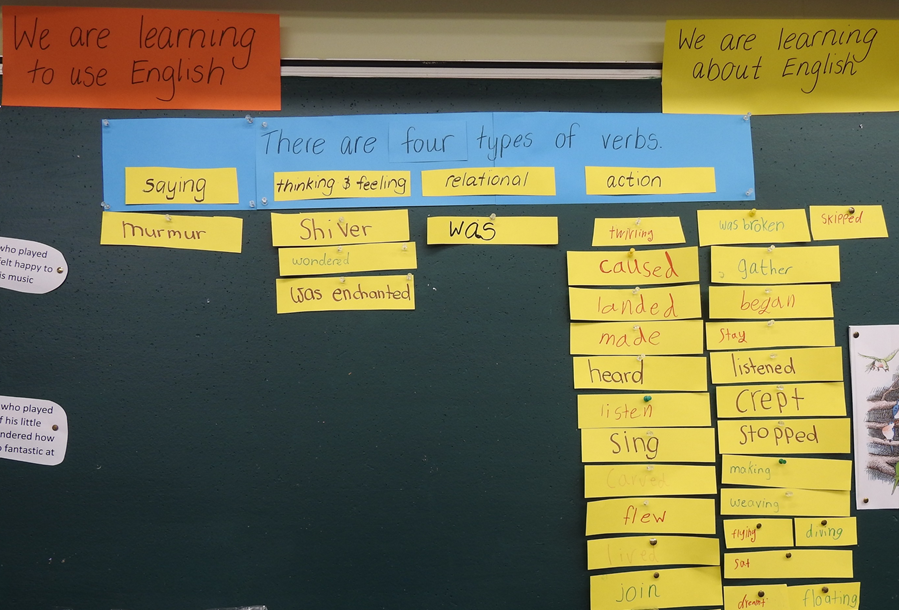 We are learning
to use English
We are learning
about English
There are four types of verbs.
saying
thinking & feeling
relational
action
murmur
Shiver
wondered
was enchanted
was
twirling
was broken
skipped
caused
gather
landed
began
made
stay
heard
listened
listen
crept
sing
stopped
carved
making
flew
weaving
flying
diving
lived
sat
join
dreamt
floating
who played
felt happy to
is music
who played
f his little
ndered how
fantastic at